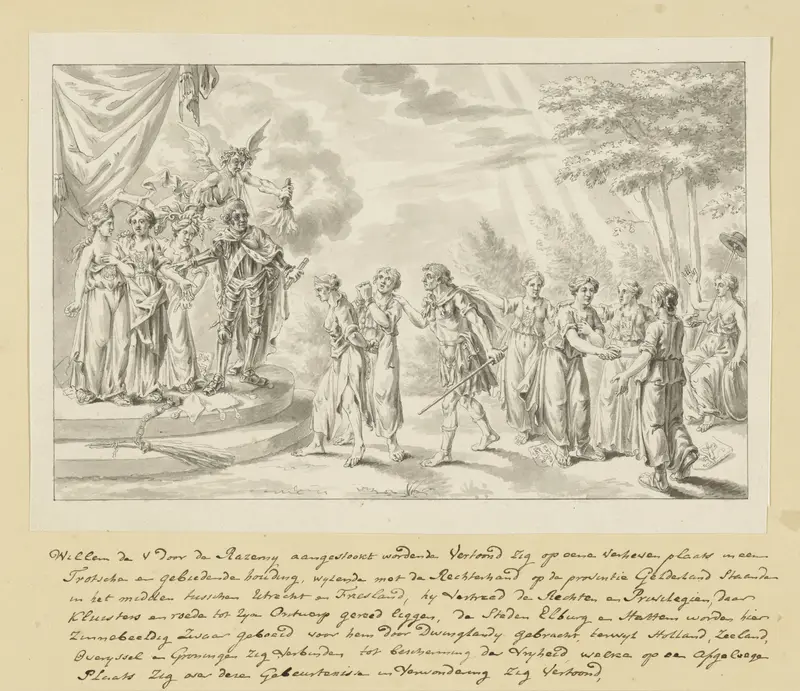 Willem de V door de Razerny aangestookt wordende Vertoond zig op eene verheven plaats in een
Trotsche en gebiedende houding, wyzende met de Rechterhand op de provintie Gelderland Staande
in het midden tusschen Utrecht en Friesland, hy Vertreed de Rechten en Privilegien, daar
Kluisters en roede tot Zyn Ontwerp gereed liggen, de Steden Elburg en Hattem worden hier
Zinnebeeldig Zwaar geboeid voor hem door Dwinglandy gebracht, terwyl Holland, Zeeland,
Overyssel en Groningen Zig Verbinden tot bescherming der Vryheid welke op een Afgelege
Plaats Zig over deze Gebeurtenisse in Verwondering Zig Vertoond,